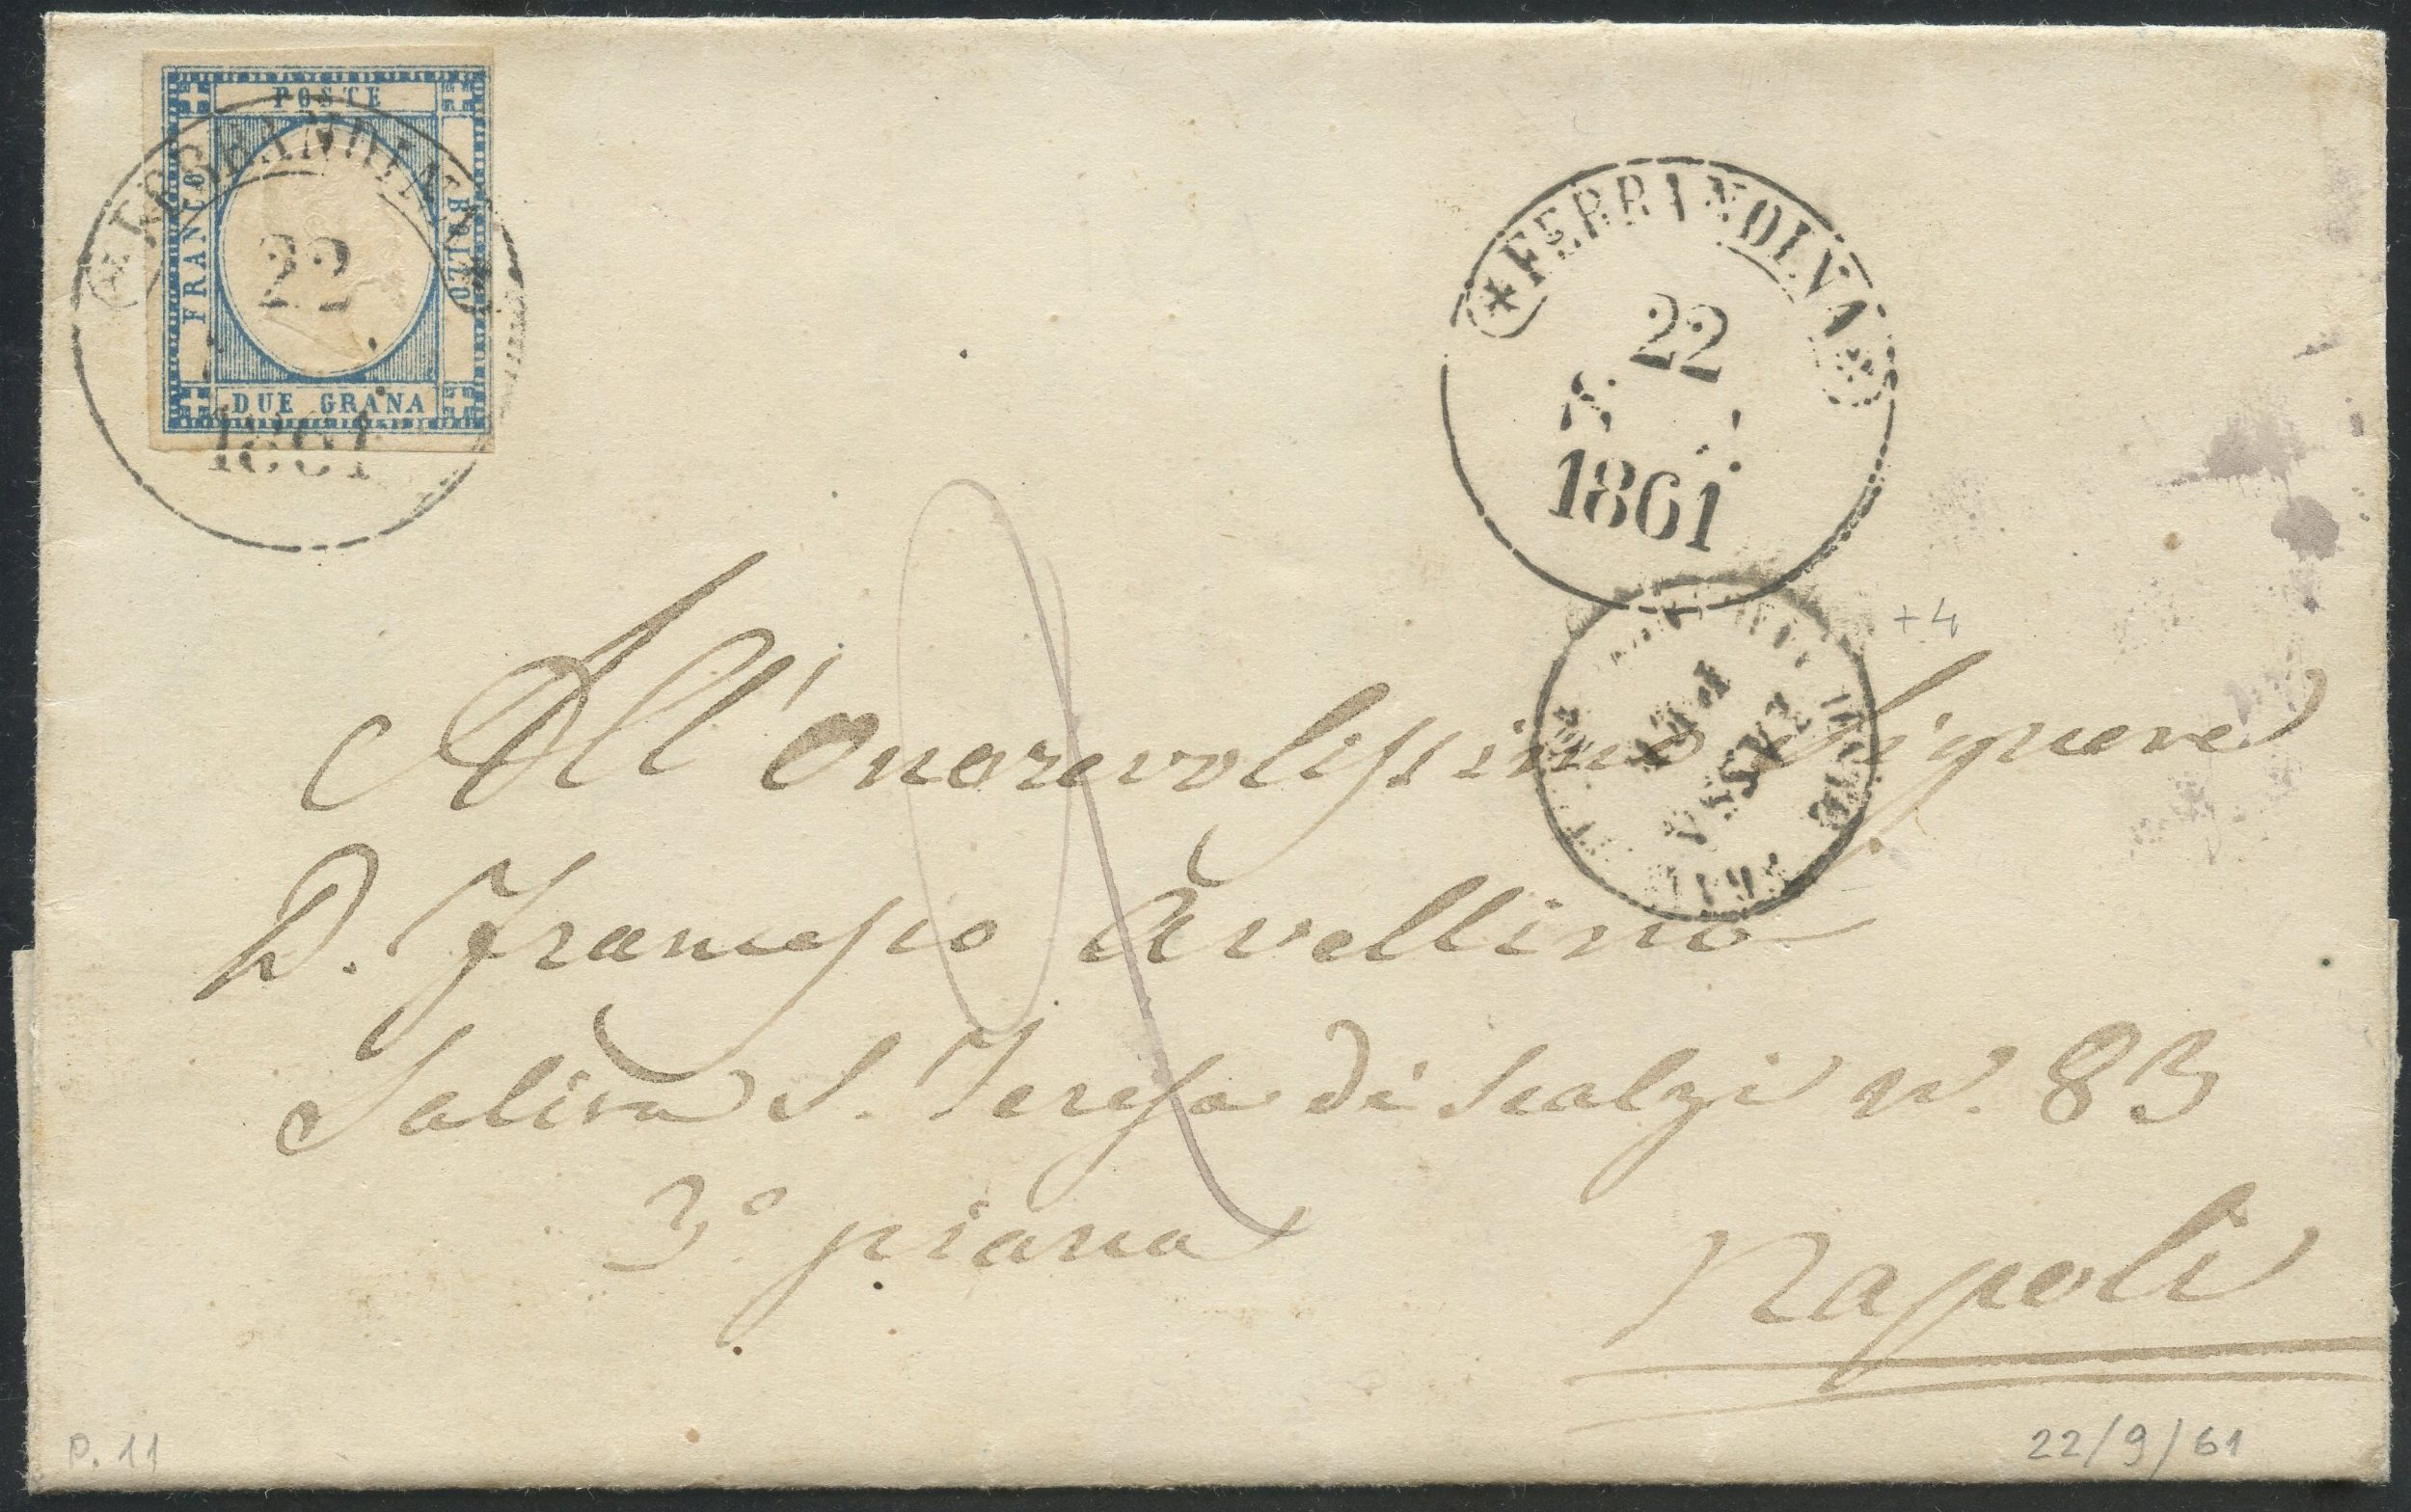 POSTE
FRANCO
BOLLO
DUE GRANA
FERRANDINA
22
1861
FERRANDINA
22
1861
+4
All'Onorevolissimo Signore
D. Francesco Avellino
Salita S. Teresa di Scalzi n. 83
3° piano
Napoli
P. 11
22/9/61